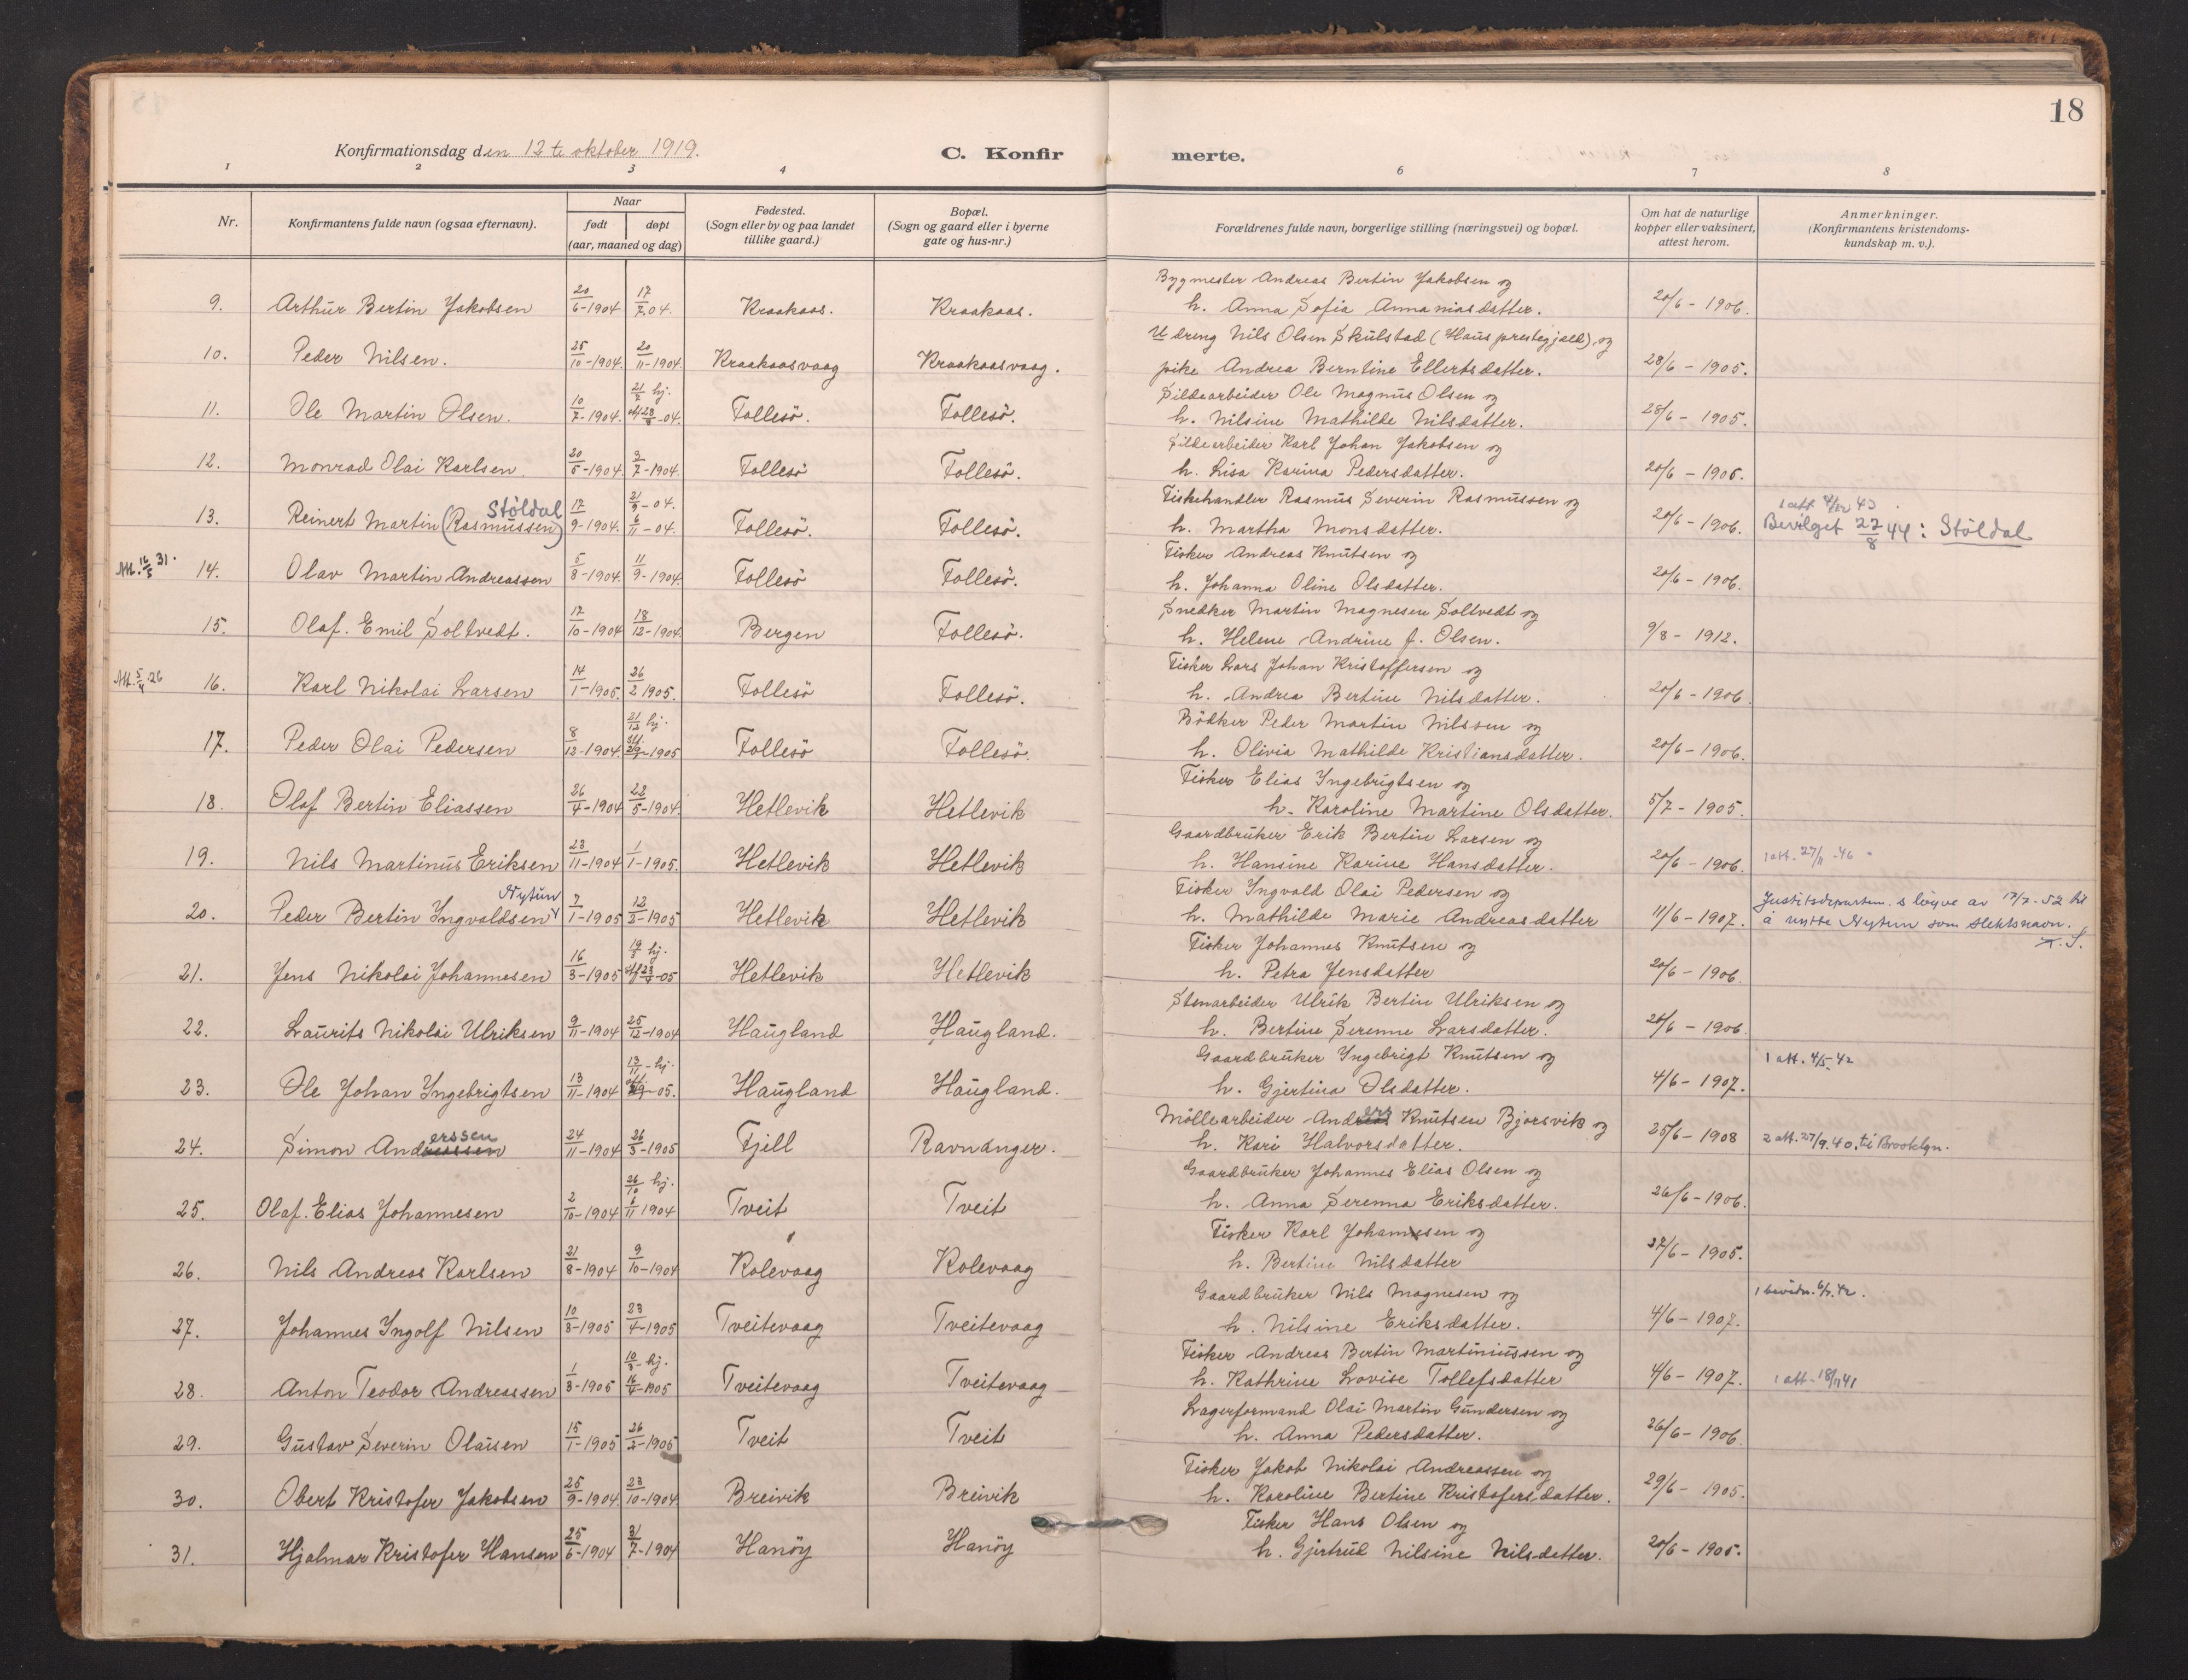 18
Konfirmationsdag den 12te oktober 1919.
C. Konfir merte.
1 2 3 4 6 7 8
Nr.
Konfirmantens fulde navn (ogsaa efternavn).
Naar
født døpt
(aar, maaned og dag)
Fødested.
(Sogn eller by og paa landet
tillike gaard.)
Bopæl.
(Sogn og gaard eller i byerne
gate og hus-nr.)
Forældrenes fulde navn, borgerlige stilling (næringsvei) og bopæl.
Om hat de naturlige
kopper eller vaksinert,
attest herom.
Anmerkninger.
(Konfirmantens kristendoms-
kundskap m. v.).
Bygmester Andreas Bertin Jakobsen og
9. Arthur Bertin Jakobsen 20/6-1904 17/7.04. Kraakaas. Kraakaas. h. Anna Sofia Annaniasdatter. 20/6-1906.
U dreng Nils Olsen Skulstad (Haus prestegjeld) og
10. Peder Nilsen. 25/10-1904. 20/11-1904. Kraakaasvaag Kraakaasvaag. pike Andrea Berntine Ellertsdatter. 28/6-1905.
21/7 hj. Sildearbeider Ole Magnus Olsen og
11. Ole Martin Olsen. 10/7-1904. 28/8-04. Follesö. Follesö. h. Nilsine Mathilde Nilsdatter. 28/6-1905.
Sildearbeider Karl Johan Jakobsen og
12. Monrad Olai Karlsen. 20/5-1904. 3/7-1904. Follesö Follesö. h. Lisa Karina Pedersdatter. 20/6-1906.
Stöldal 21/9-04. Fiskehandler Rasmus Severin Rasmussen og 1 att. 4/12 43
13. Reinert Martin (Rasmussen) 17/9-1904. 6/11-04. Follesö. Follesö. h. Martha Monsdatter. 20/6-1906. Bevilget 22/8 44: Stöldal
Fisker Andreas Knutsen og
Att. 16/5 31. 14. Olav Martin Andreassen 5/8-1904. 11/9-1904. Follesö Follesö. h. Johanna Oline Olsdatter. 20/6-1906.
Snedker Martin Magnesen Soltvedt og
15. Olaf. Emil Soltvedt. 17/10-1904 18/12-1904. Bergen Follesö. h. Helene Andrine f. Olsen. 9/8-1912.
Fisker Lars Johan Kristoffersen og
Att. 5/4 26 16. Karl Nikolai Larsen 14/1-1905. 26/2 1905. Follesö Follesö. h. Andrea Bertine Nilsdatter. 20/6-1906.
21/12 hj. Bödker Peder Martin Nilssen og
17. Peder Olai Pedersen 8/12-1904. 1905 Follesö Follesö. h. Olivia Mathilde Kristiansdatter. 20/6-1906.
Fisker Elias Ingebrigtsen og
18. Olaf Bertin Eliassen 26/4-1904 22/5-1904. Hetlevik Hetlevik h. Karoline Martine Olsdatter. 5/7-1905.
Gaardbruker Erik Bertin Larsen og
19. Nils Martinus Eriksen 23/11-1904 1/1-1905. Hetlevik Hetlevik h. Hansine Karine Hansdatter. 20/6-1906. 1 att. 27/11-46
Nytun Fisker Ingvald Olai Pedersen og Justitsdepartem.s löyve av 17/7-52 til
20. Peder Bertin Ingvaldsen 7/1-1905 12/3-1905 Hetlevik Hetlevik h. Mathilde Marie Andreasdatter 11/6-1907. å nytte Nytun som slektsnavn.
19/3 hj. Fisker Johannes Knutsen og
21. Jens Nikolai Johannesen 16/3-1905 05 Hetlevik Hetlevik h. Petra Jensdatter 20/6-1906.
Stenarbeider Ulrik Bertin Ulriksen og
22. Laurits Nikolai Ulriksen 9/11-1904 25/12-1904 Haugland Haugland. h. Bertine Serenne Larsdatter. 20/6-1906.
13/11-hj. Gaardbruker Ingebrigt Knutsen og 1 att. 4/5-42
23. Ole Johan Ingebrigtsen 13/11-1904 05. Haugland Haugland. h. Gjertina Olsdatter. 4/6-1907.
erssen Möllearbeider Anders Knutsen Bjorsvik og
24. Simon Andreassen 24/11-1904 26/3-1905 Fjell Ravnanger. h. Kari Halvorsdatter. 25/6-1908 2 att. 27/9.40. til Brooklyn.
26/10 hj. Gaardbruker Johannes Elias Olsen og
25. Olaf. Elias Johannesen 2/10-1904 6/11 1904 Tveit Tveit h. Anna Serenna Eriksdatter. 26/6-1906.
Fisker Karl Johannesen og
26. Nils Andreas Karlsen 21/8-1904 9/10-1904 Kolevaag Kolevaag h. Bertine Nilsdatter 27/6-1905.
Gaardbruker Nils Magnesen og
27. Johannes Ingolf Nilsen 10/3-1905 23/4-1905 Tveitevaag Tveitevaag h. Nilsine Eriksdatter. 4/6-1907.
10/3 hj. Fisker Andreas Bertin Martiniussen og
28. Anton Teodor Andreassen 1/3-1905 16/4-1905 Tveitevaag Tveitevaag h. Kathrine Lovise Tollefsdatter 4/6-1907. 1 att-18/11 41
Lagerformand Olai Martin Gundersen og
29. Gustav Severin Olaisen 15/1-1905 26/2-1905 Tveit Tveit h. Anna Pedersdatter. 26/6-1906.
Fisker Jakob Nikolai Andreassen og
30. Obert Kristofer Jakobsen 25/9-1904. 23/10-1904 Breivik Breivik h. Karoline Bertine Kristofersdatter. 29/6-1905.
Fisker Hans Olsen og
31. Hjalmar Kristofer Hansen 25/6-1904 31/7-1904 Hanöy Hanöy h. Gjertrud Nilsine Nilsdatter. 20/6-1905.